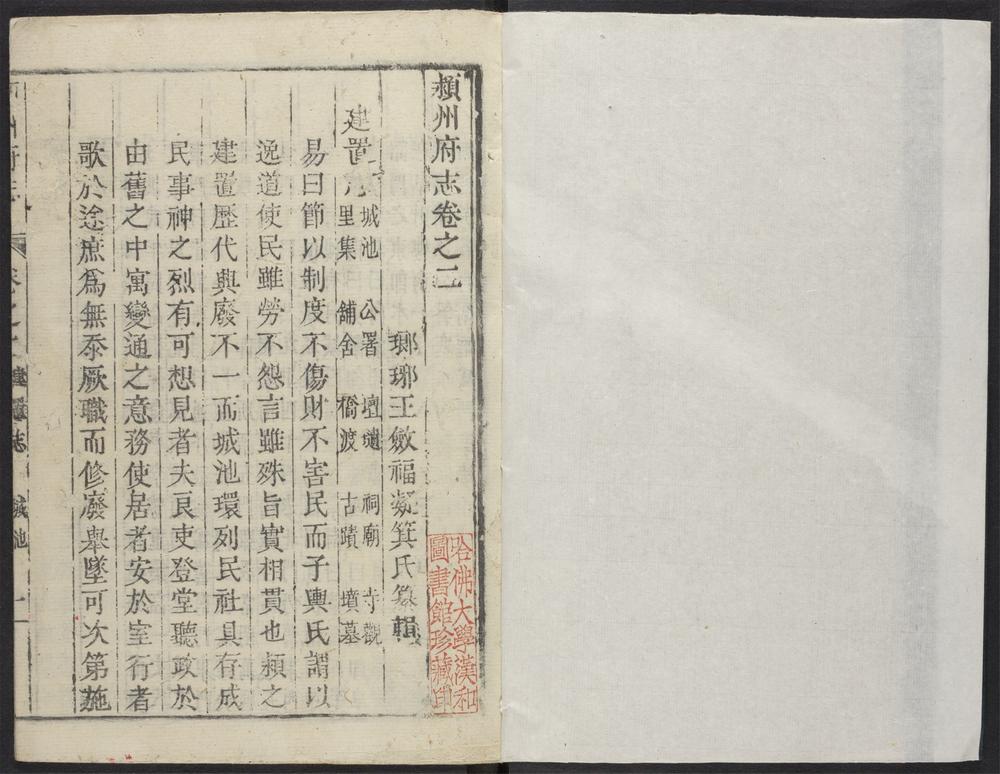 潁州府志卷之二
瑯琊王斂福凝箕氏纂輯
建置
城池 公署 壇壝 祠廟 寺觀
里集 舖舍 橋渡 古蹟 墳墓
易曰節以制度不傷財不害民而子輿氏謂以
逸道使民雖勞不怨言雖殊旨實相貫也潁之
建置歷代興廢不一而城池環列民社具存成
民事神之烈有可想見者夫良吏登堂聽政於
由舊之中寓變通之意務使居者安於室行者
歌於途庶爲無忝厥職而修廢舉墜可次第施
州府志
卷之二 建置志 城池 一
哈佛大學漢和
圖書館珍藏印